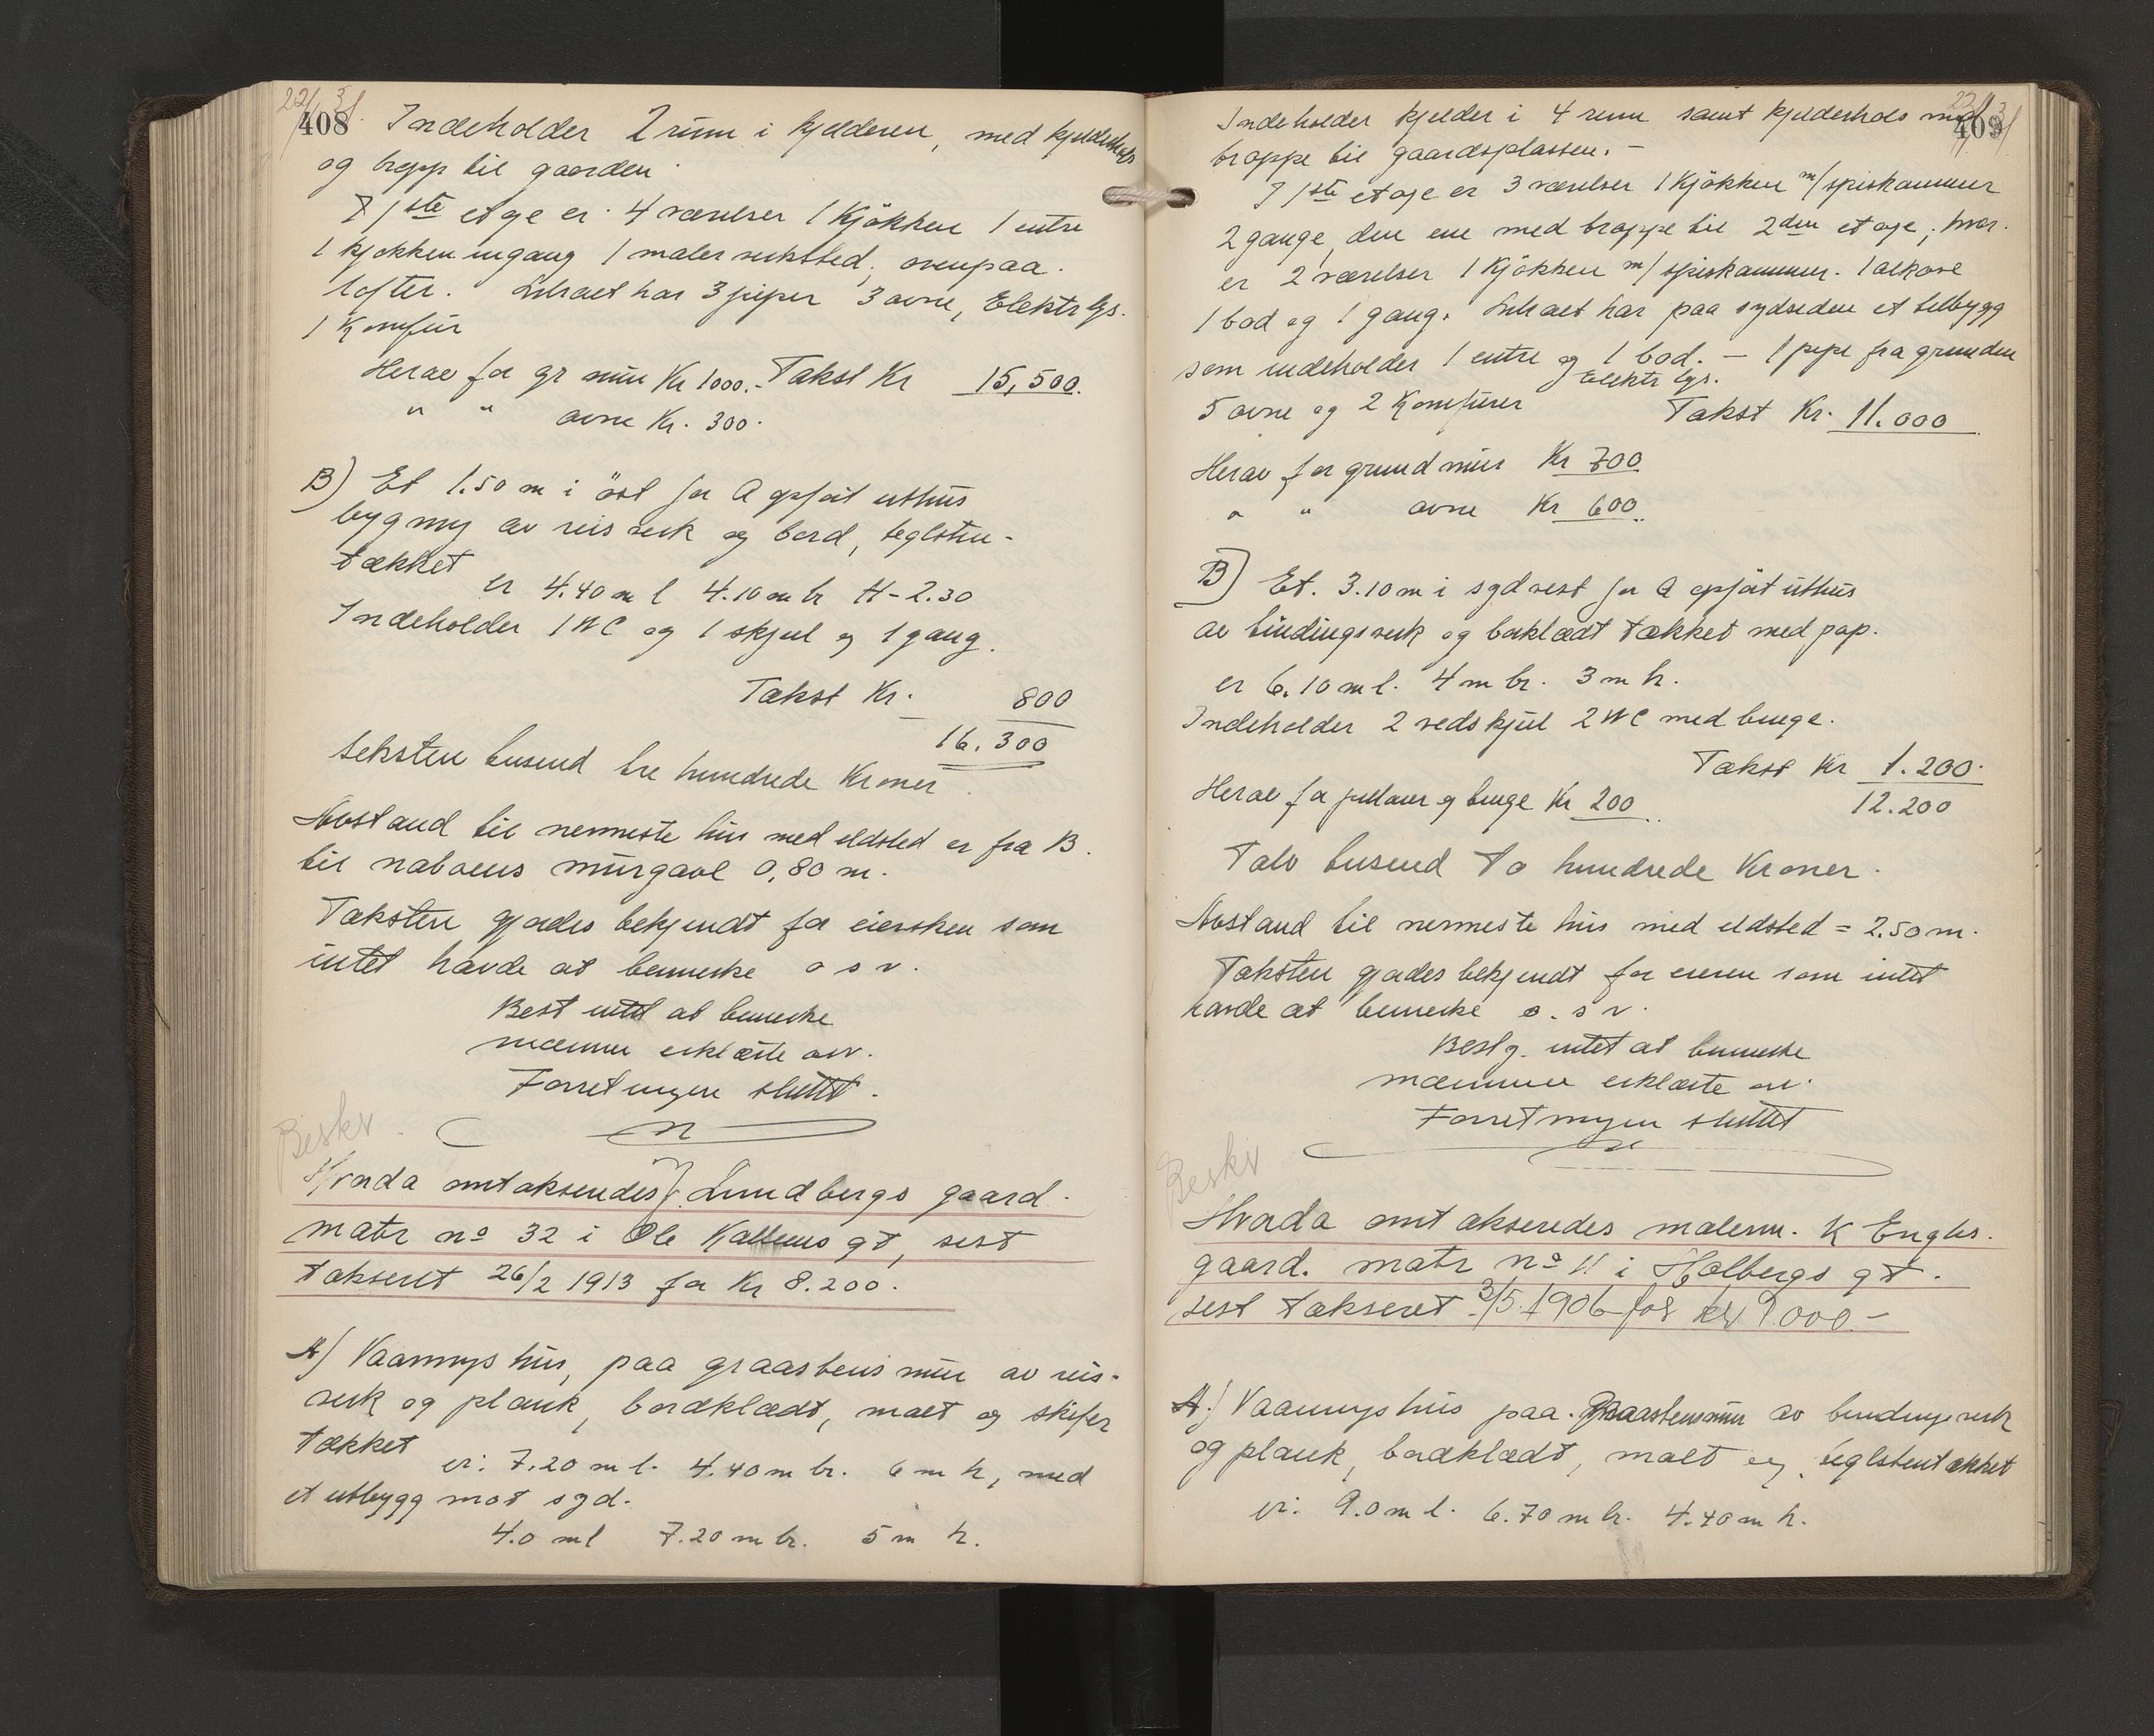 22/ 3/
408 Indeholder 2 rum i kjelderen, med kjelderhals
og trapp til gaarden.
I 1ste etge er 4 værelser 1 Kjökken 1 entre
1 kjøkkeningang 1 malerverksted, ovenpaa.
lofter. Huset har 3 piper 3 ovne, Elektr lys.
1 Komfür
Herav for gr mür Kr 1000.- Takst Kr 15,500.
" " ovne Kr. 300.
B) Et 1.50 m i öst for A opfört uthüs
bygning av reisverk og bord, teglsten-
tækket
er 4.40 m l 4.10 m br H-2.30
Indeholder 1 WC og 1 skjul og 1 gang.
Takst Kr. 800
16.300
Seksten tusend tre hundrede Kroner.
Avstand til nermeste hüs med ildsted er fra B.
til naboens mürgavl 0,80 m.
Taksten gjordes bekjendt for eiersken som
intet havde at bemerke o s v.
Best intet at bemerke
mænnene erklærte osv.
Forretningen sluttet.
Beskr.
Hvorda omtakseredes J. Lundbergs gaard.
matr no 32 i Ole Kallems gt, sist
takseret 26/2 1913 for Kr 8.200.
A) Vaaningshüs, paa graastensmür av reis-
verk og plank, bordklædt, malt og skifer
tækket
er: 7.20 m l. 4.40 m br. 6 m h, med
et utbygg mot syd.
4.0 m l 7.20 m br. 5 m h.
22/ 3/
409
Indeholder kjelder i 4 rum samt kjelderhals med
trappe til gaardsplassen.-
I 1ste etage er 3 værelser 1 Kjökken m/ spiskammer
2 gange, den ene med trappe til 2den etage, hvor.
er 2 værelser 1 Kjökken m/ spiskammer. 1 alkove
1 bod og 1 gang. Huset har paa sydsiden et tilbygg
som indeholder 1 entre og 1 bod. - 1 pipe fra grunden
Elektr lys.
5 ovne og 2 Komfürer Takst Kr. 11.000
Herav for grundmür Kr 700
" " ovne Kr 600
B) Et. 3.10 m i sydvest for A opfört üthüs
av bindingsverk og bordklædt tækket med pap.
er 6.10 m l. 4 m br. 3 m h.
Indeholder 2 vedskjül 2 WC med binge.
Takst Kr 1.200.
Herav for pillarer og binge Kr 200
12.200
Tolv tusend to hundrede Kroner.
Avstand til nermeste hüs med ildsted = 2.50 m.
Taksten gjordes bekjendt for eieren som intet
havde at bemerke o. s v.
Bestg. intet at bemerke
mænnene erklærte osv.
Forretningen sluttet
Beskr
Hvorda omtakseredes malerm. K Enghs.
gaard. matr no 11 i Holbergs gt.
sist takseret 3/5. 1906 for kr 9.000.-
A.) Vaaningshüs paa. Graastensmür av bindingsverk
og plank, bordklædt, malt og teglstentækket
er: 9.0 m l. 6.70 m br. 4.40 m h.